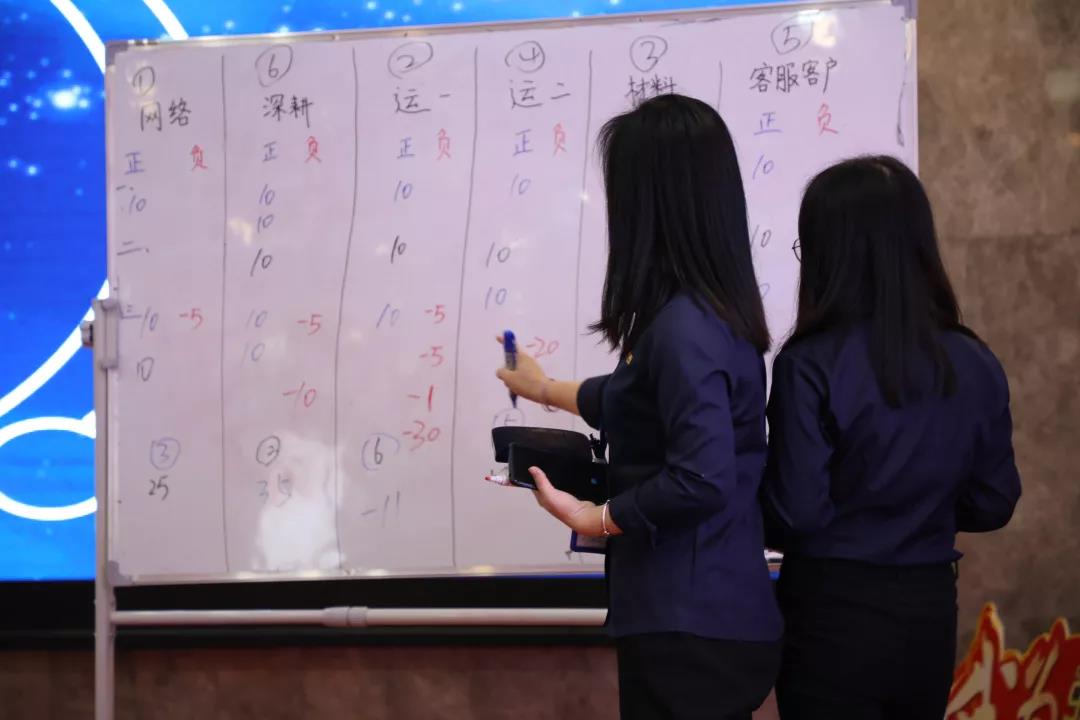 ① ⑥ ② ④ ③ ⑤
网络 深耕 运一 运二 材料 客服客户
正 负 正 负 正 负 正 负 正 负
一、10 10 10 10 10
10
二、 10 10 10 10
10
三 10 -5 10 -5 10 -5
10 10 -5 -20
-10 -1
-30
③ ② ⑥
25 35 -11